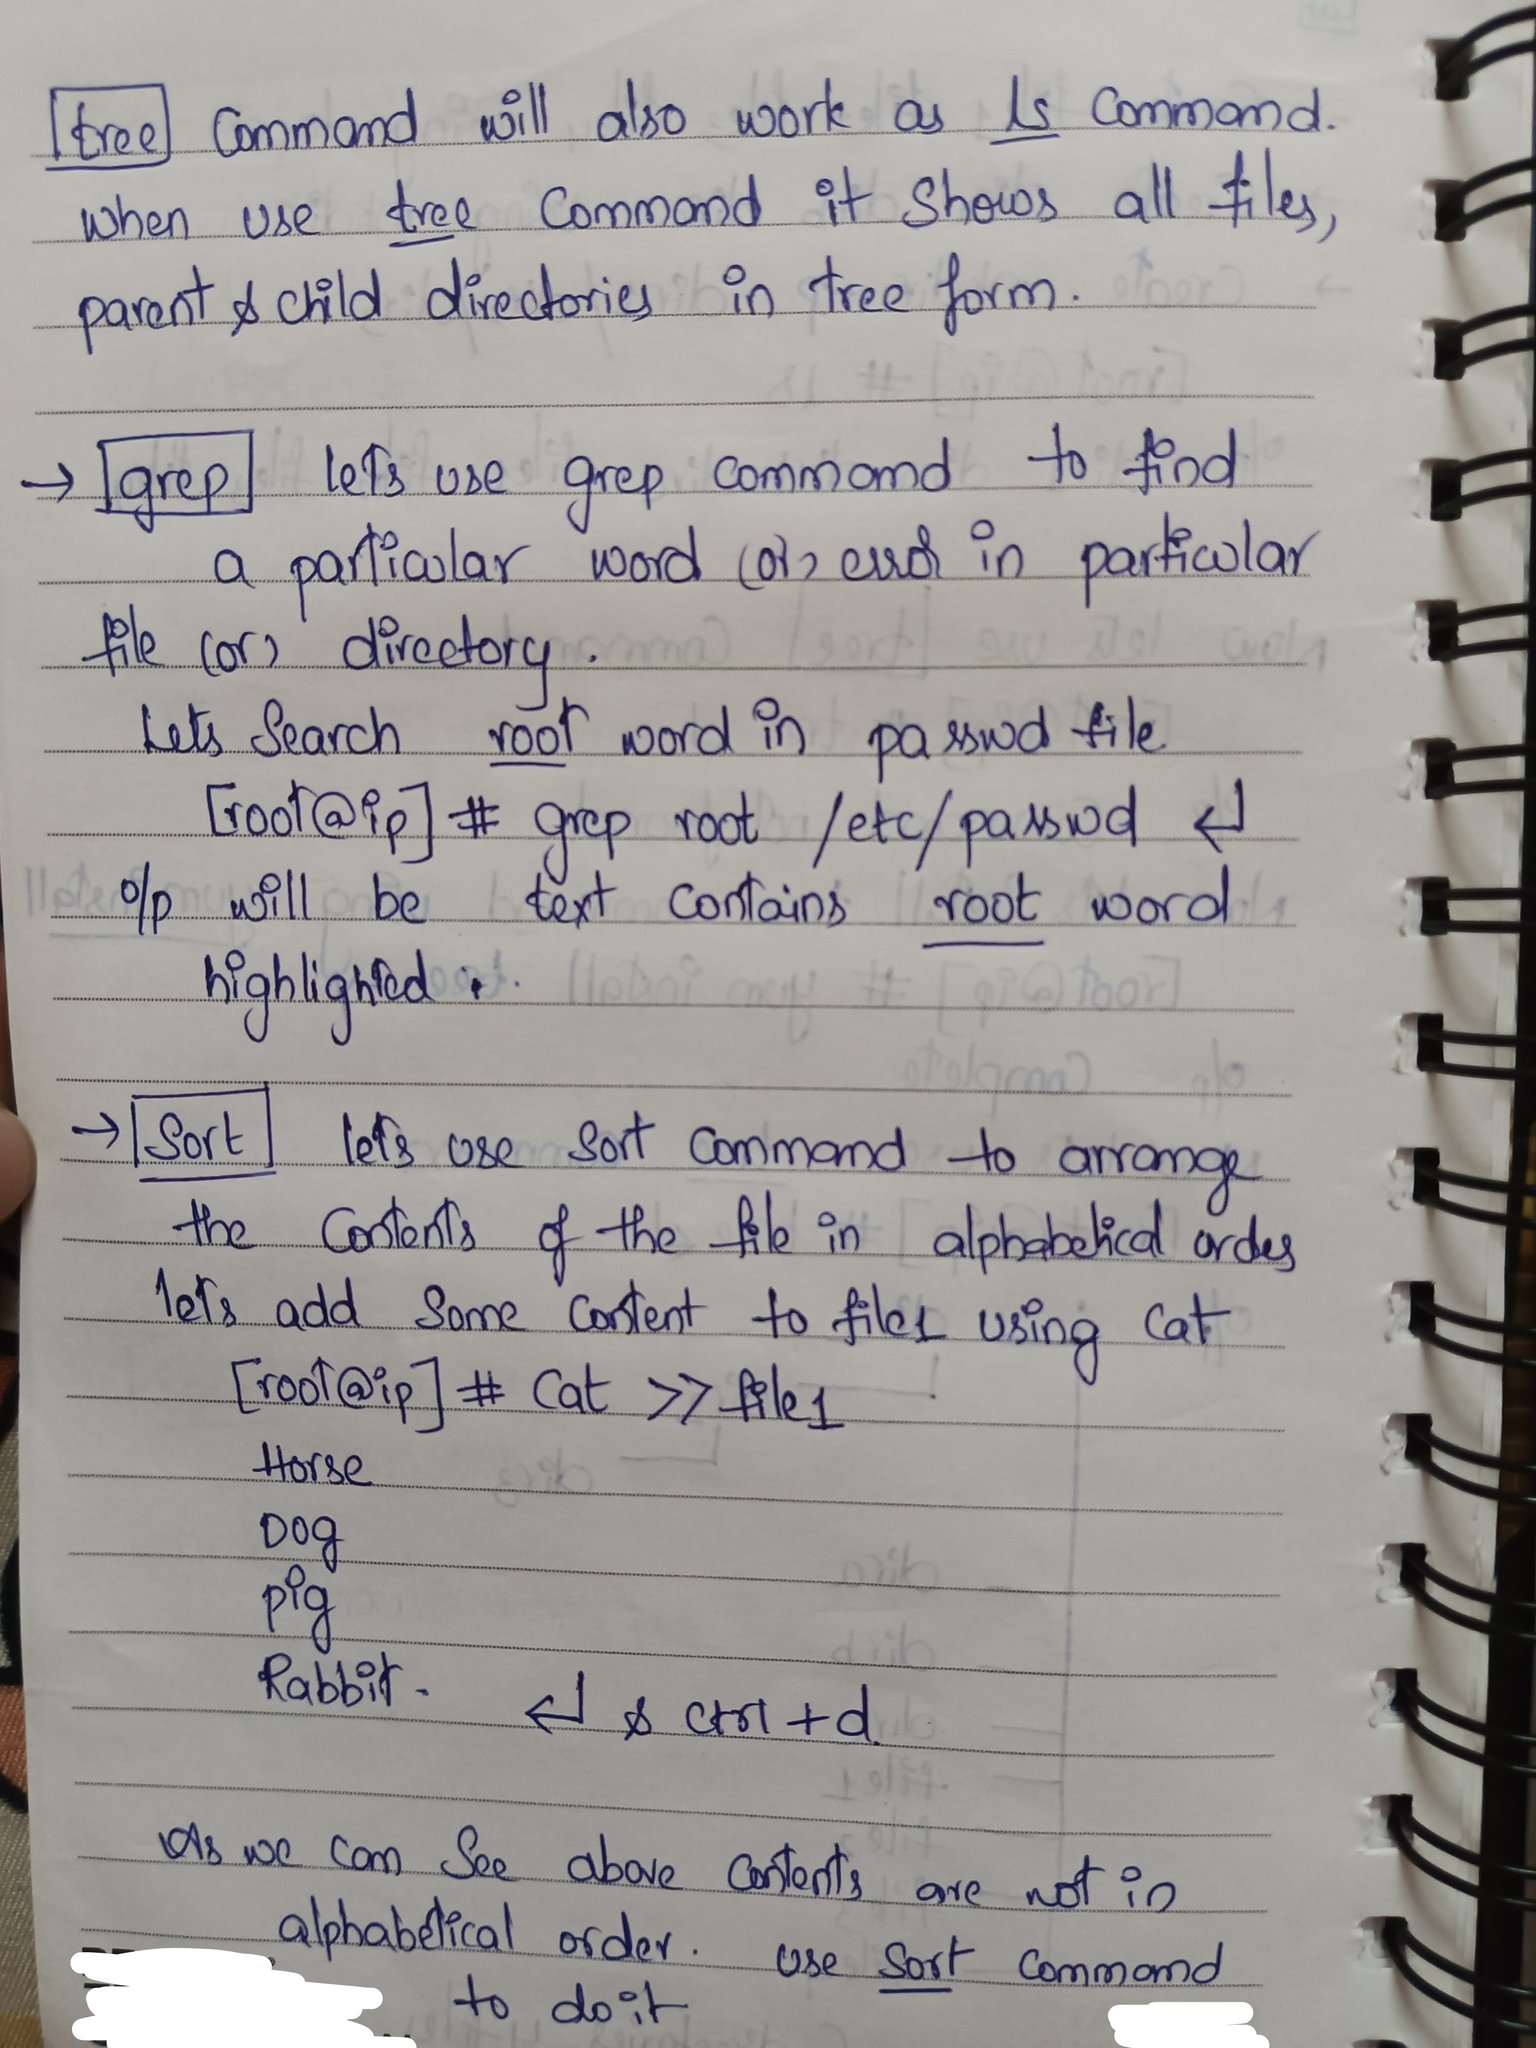 tree Command will also work as ls Command.
when use tree Command it shows all files,
parent & child directories in tree form.
→ grep lets use grep command to find
a particular word (or) error in particular
file (or) directory.
Lets Search root word in passwd file
[root@ip] # grep root /etc/passwd ↵
o/p will be text contains root word
highlighted.
→ Sort lets use sort command to arrange
the contents of the file in alphabetical order
lets add some content to file1 using cat
[root@ip] # cat >> file1
Horse
Dog
Pig
Rabbit.
↵ & ctrl + d.
As we can see above contents are not in
alphabetical order. use sort command
to do it